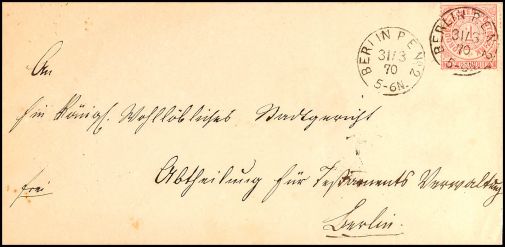 BERLIN P.E. No 2
31/3
70
5-6N.
BERLIN P.E. No 2
31/3
70
5-
An
Ein Königl. Wohllöbliches Stadtgericht
Abtheilung für Testaments Verwaltung
frei
Berlin.